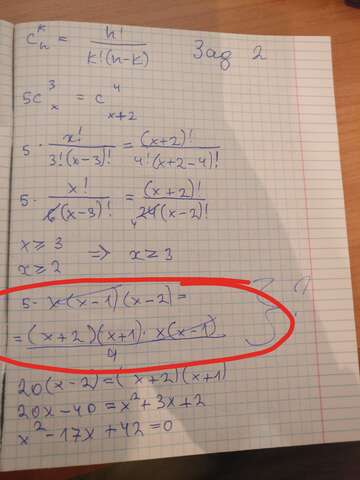 C_n^k = n! / k!(n-k) Зад 2
5C_x^3 = C_{x+2}^4
5 · x! / 3!(x-3)! = (x+2)! / 4!(x+2-4)!
5 · x! / 6(x-3)! = (x+2)! / 24(x-2)!
x ≥ 3
x ≥ 2 => x ≥ 3
5 · x(x-1)(x-2) =
= (x+2)(x+1) · x(x-1) / 4
20(x-2) = (x+2)(x+1)
20x - 40 = x² + 3x + 2
x² - 17x + 42 = 0